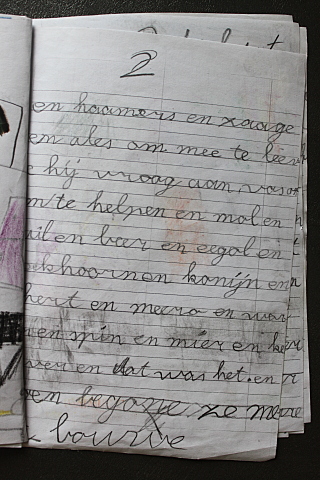 2
en haamers en zawige
em ales om mee te
hij vroag aan
te helpen en mol en
uil en beer en eegol en
ekhoorn en konijn en
hert en meero en war
en spin en mier en
ver en dat was het. en
en begone ze meere
bourwe